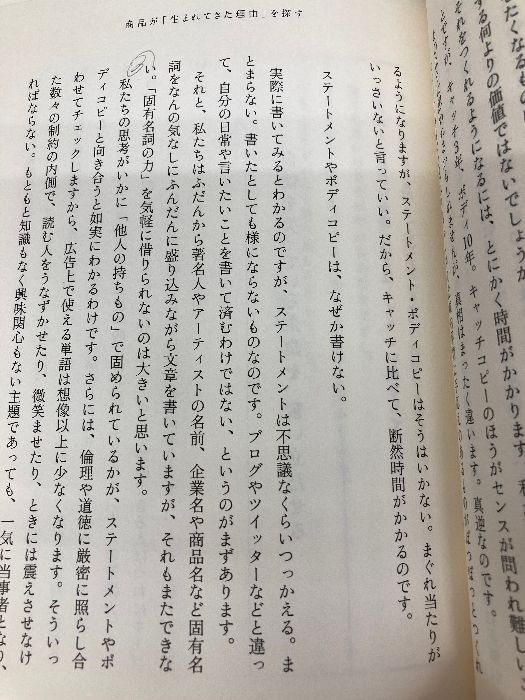 商品が「生まれてきた理由」を探す
たくなるもの
する何よりの価値ではないでしょうか
それをつくれるようになるには、とにかく時間がかかります。
キャッチ3年、ボディ10年。キャッチコピーのほうがセンスが問われ難しい
真相はまったく違います。真逆なのです。
るようになりますが、ステートメント・ボディコピーはそうはいかない。まぐれ当たりが
いっさいないと言っていい。だから、キャッチに比べて、断然時間がかかるのです。
ステートメントやボディコピーは、なぜか書けない。
実際に書いてみるとわかるのですが、ステートメントは不思議なくらいつっかえる。ま
とまらない。書いたとしても様にならないものなのです。ブログやツイッターなどと違っ
て、自分の日常や言いたいことを書いて済むわけではない、というのがまずあります。
それと、私たちはふだんから著名人やアーティストの名前、企業名や商品名など固有名
詞をなんの気なしにふんだんに盛り込みながら文章を書いていますが、それもまたできな
い。「固有名詞の力」を気軽に借りられないのは大きいと思います。
私たちの思考がいかに「他人の持ちもの」で固められているかが、ステートメントやボ
ディコピーと向き合うと如実にわかるわけです。さらには、倫理や道徳に厳密に照らし合
わせてチェックしますから、広告上で使える単語は想像以上に少なくなります。そういっ
た数々の制約の内側で、読む人をうなずかせたり、微笑ませたり、ときには震えさせなけ
ればならない。もともと知識もなく興味関心もない主題であっても、一気に当事者となり、